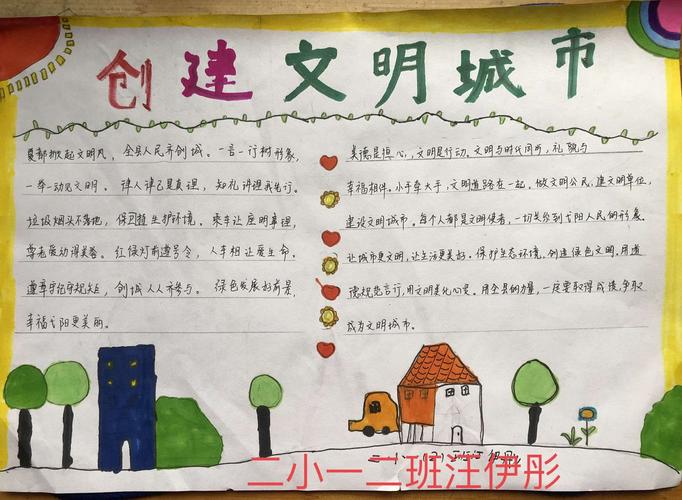 创建文明城市
夏都掀起文明风，全县人民齐创城。一言一行树形象，
一举一动见文明。律人律己是真理，知礼讲理我先行。
垃圾烟头不落地，保护生护环境。乘车让座明事理，
尊老爱幼得美春。红绿灯前遵号令，人车相让爱生命。
遵章守纪守规矩，创城人人齐参与。绿色发展好前景，
幸福弋阳更美丽。
美德是恒心，文明是行动。文明与时代同步，礼貌与
幸福相伴。小手牵大手，文明道路在一起。做文明公民，建文明单位，
建设文明城市。每个人都是文明使者，一切关系到弋阳人民的形象。
让城市更文明，让生活更美好。保护生态环境，创造绿色文明。用道
德规范言行，用文明美化心灵。用全县的力量，一定要取得成绩，争取
成为文明城市。
二小一二班汪伊彤